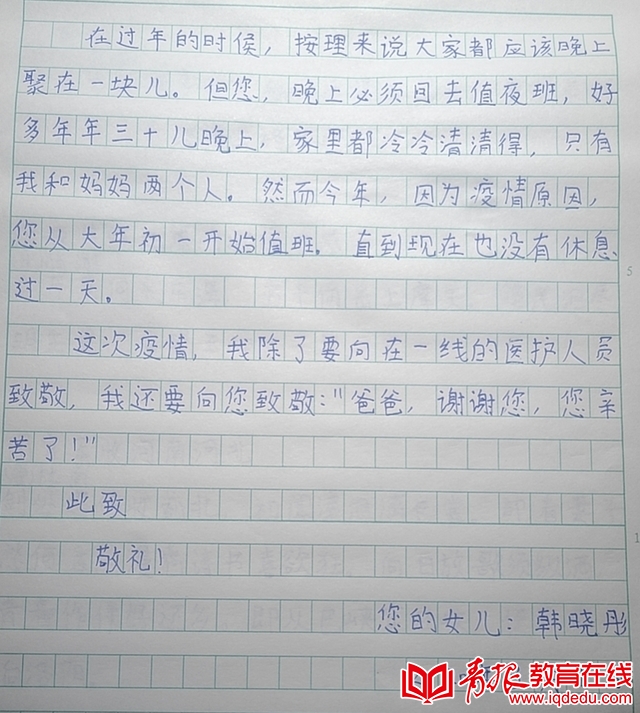 在过年的时候，按理来说大家都应该晚上
聚在一块儿。但您，晚上必须回去值夜班，好
多年年三十儿晚上，家里都冷冷清清得，只有
我和妈妈两个人。然而今年，因为疫情原因，
您从大年初一开始值班。直到现在也没有休息
过一天。
这次疫情，我除了要向在一线的医护人员
致敬，我还要向您致敬："爸爸，谢谢您，您亲
苦了！"
此致
敬礼！
您的女儿：韩晓彤
青报教育在线
www.iqdedu.com
5
1